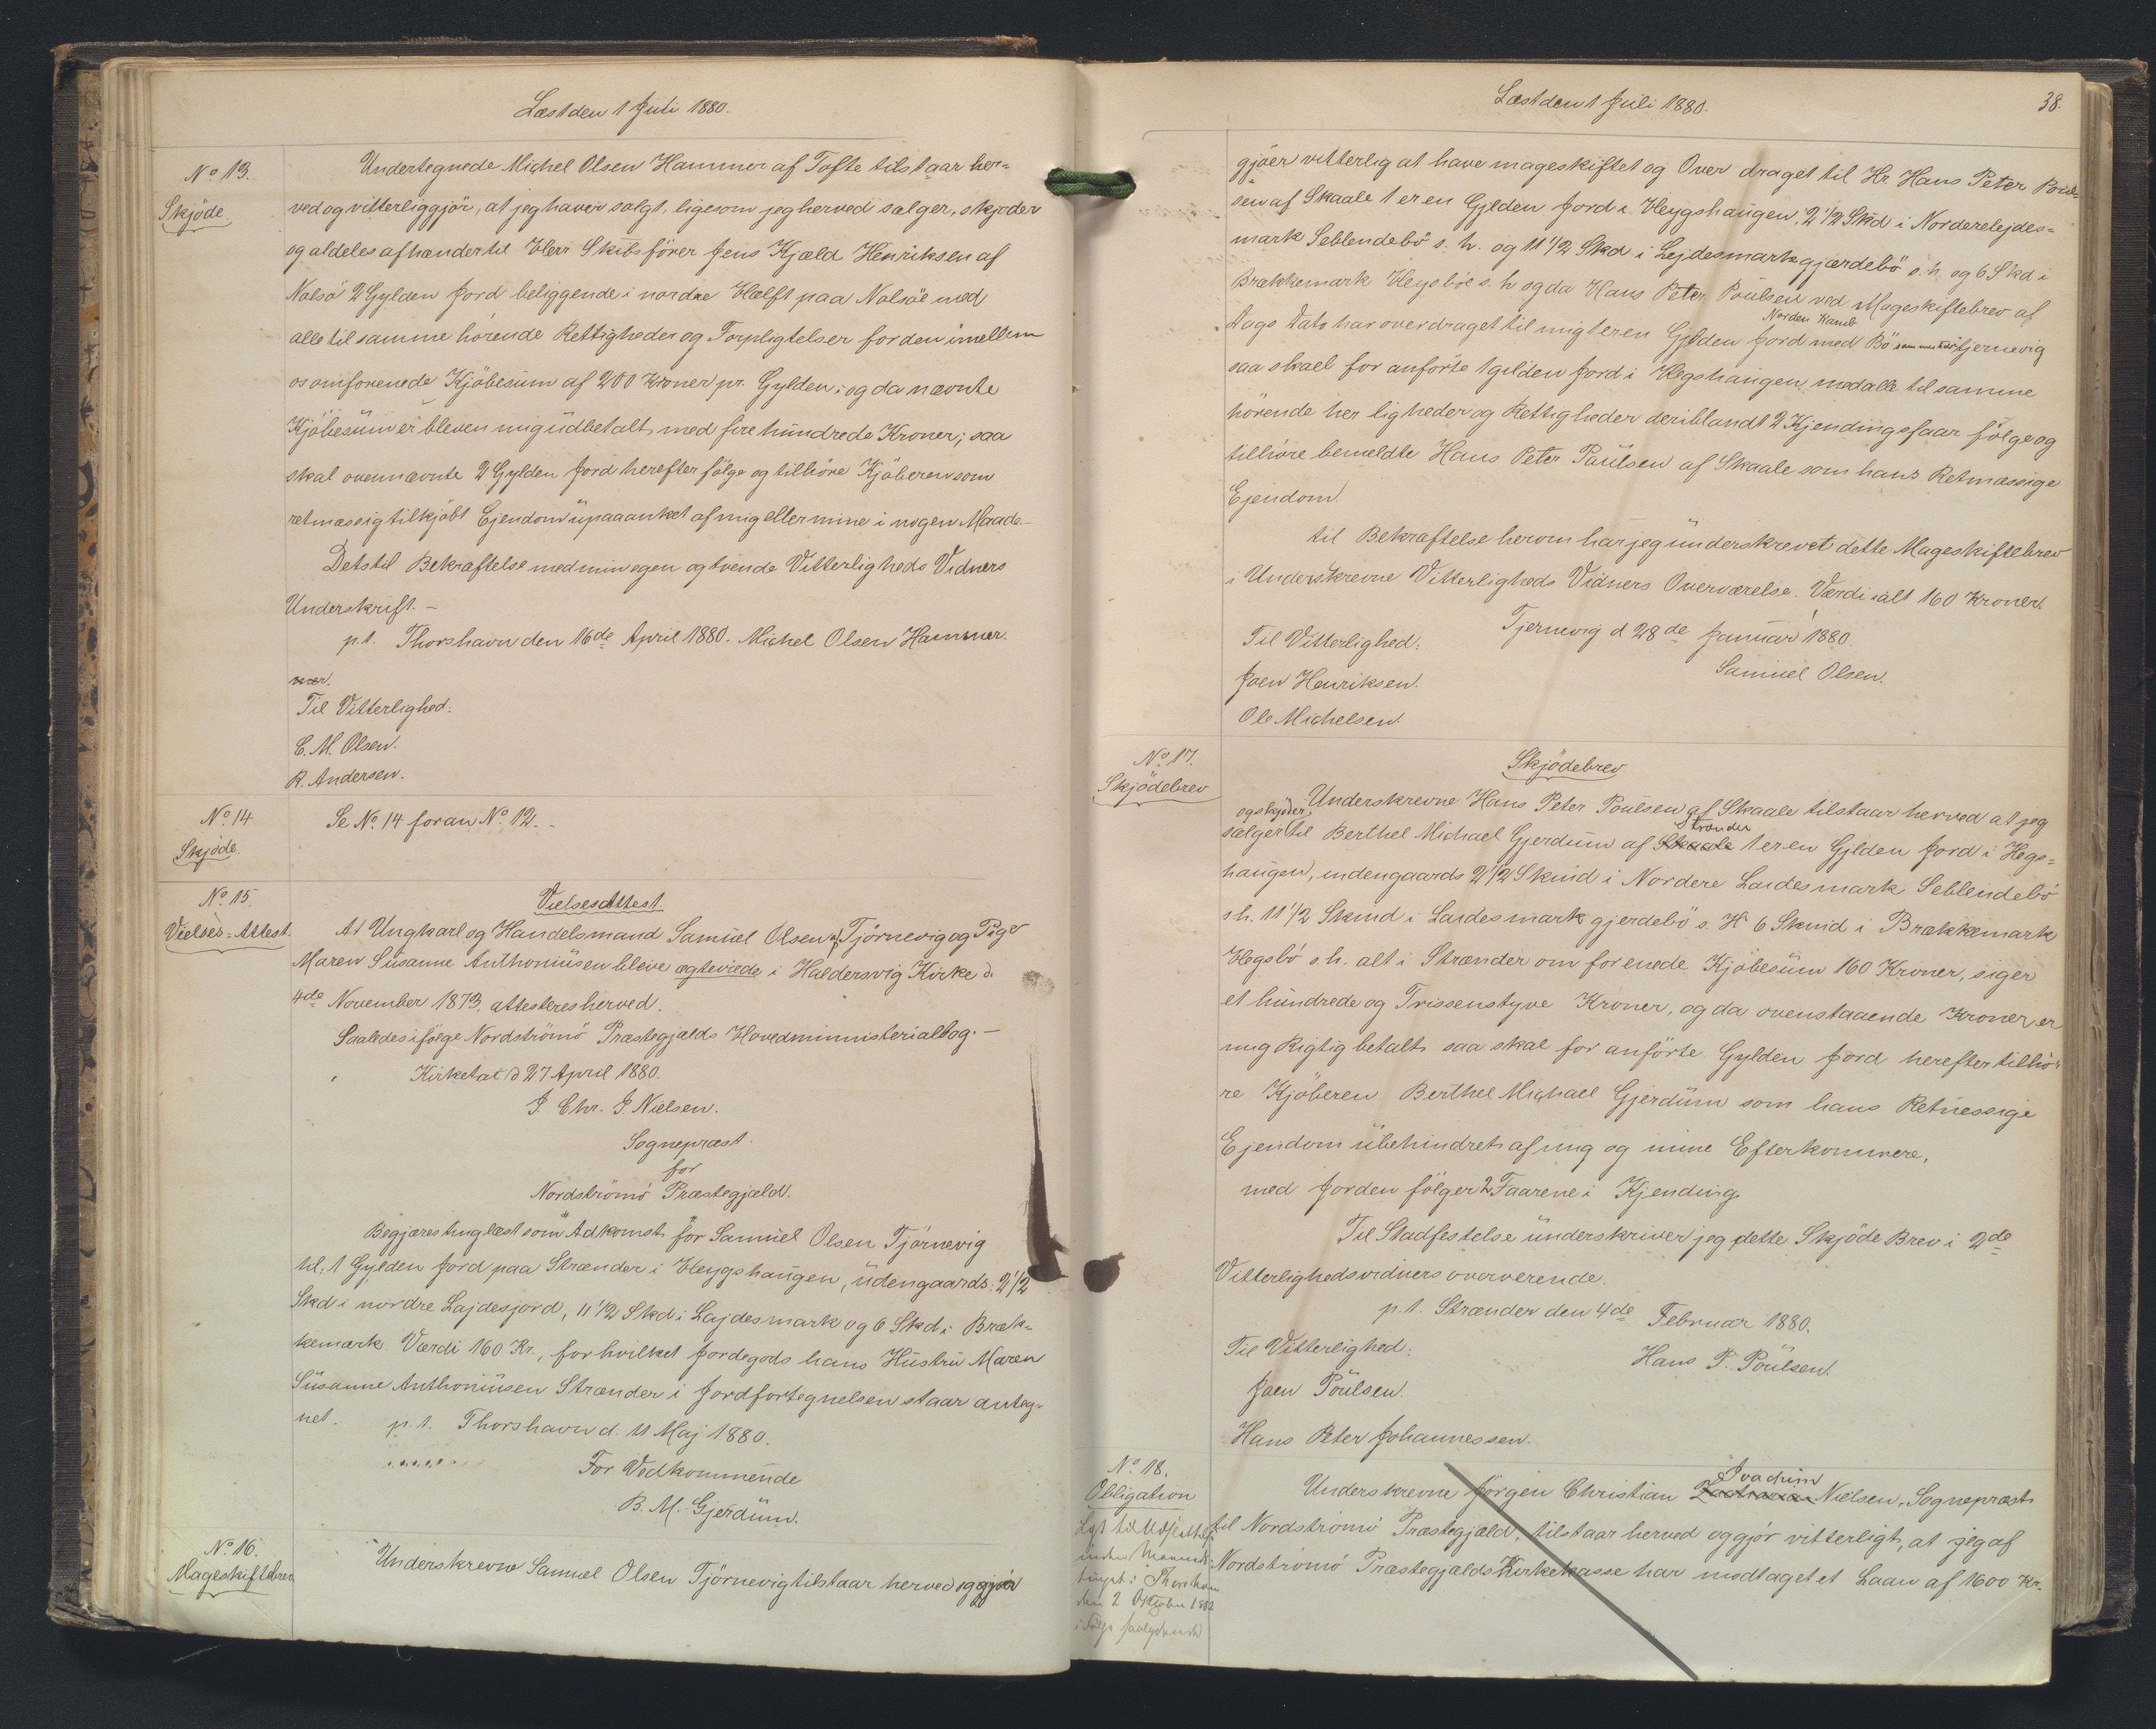 Læst den 1 Juli 1880.
No 13.
Skjöde.
Undertegnede Michel Olsen Hammer af Tofte tilstaar her=
ved og vitterliggjör, at jeg haver solgt, ligesom jeg herved sælger, skjöder
og aldeles afhænder til Herr Skibsförer Jens Kjæld Henriksen af
Nolsö 2 Gylden Jord beliggende i nordre Hælft paa Nolsöe med
alle til samme hörende Rettigheder og Forpligtelser for den imellem
os omforenede Kjöbesum af 200 Kroner pr. Gylden; og da nævnte
Kjöbesum er bleven mig udbetalt med fire hundrede Kroner; saa
skal ovennævnte 2 Gylden Jord herefter fölge og tilhöre Kjöberen som
retmæssig tilkjöbt Ejendom upaaanket af mig eller mine i nogen Maade.—
Dets til Bekræftelse med min egen og tvende Vitterligheds Vidners
Underskrift. —
p.t. Thorshavn den 16de April 1880. Michel Olsen Hammer.
mer.
Til Vitterlighed:
C. M. Olsen.
R. Andersen.
No 14
Skjöde.
Se No. 14 foran No. 12.
No 15.
Vielses=Attest.
Vielsesattest
At Ungkarl og Handelsmand Samuel Olsen af Tjörnevig og Pige
Maren Susanne Anthoniusen bleve ægteviede i Haldersvig Kirke d.
4de November 1873, attesteres herved.
Saaledes ifölge Nordströmö Præstegjælds Hovedministerialbog. —
Kirketat d 27 April 1880.
J. Chr. J. Nielsen.
Sognepræst
for
Nordströmö Præstegjæld.
Begjæres tinglæst som Adkomst för Samuel Olsen Tjörnevig
til 1 Gylden Jord paa Strænder i Heygshaugen, udengaards: 2 1/2
Skd i nordre Lajdesjord, 11 1/2 Skd i Lajdesmark og 6 Skd i Bræk=
kemark. Værdi 160 Kr., for hvilket Jordegods hans Hustru Maren
Susanne Anthoniusen Strænder i Jordfortegnelsen staar anteg=
net. p.t. Thorshavn d. 11 Maj 1880.
For Vedkommende
B. M. Gjerdum.
No 16.
Mageskiftebrev
Underskrevne Samuel Olsen Tjörnevig tilstaar herved og gjör
Læst den 1 Juli 1880.
38.
gjöer vitterlig at have mageskiftet og Over draget til Hr. Hans Peter Poul=
sen af Skaale 1 er en Gylden Jord i Heygshaugen, 2 1/2 Skd i Norderelejdes=
mark Seblendebö s. h. og 11 1/2 Skd i Lejdesmarkgjærdebö s. h. og 6 Skd i
Brækkemark Heysböe s. h og da Hans Peter Poulsen ved Mageskiftebrev af
Norden Kamb
Dags Dato har overdraget til mig 1 er en Gylden Jord med Bö sammesteds i Tjernevig
saa skael for anförte 1 gilden Jord i Hegshaugen med alle til samme
hörende her ligheder og Rettigheder deriblandt 2 Kjendingsfaar fölge og
tilhöre bemeldte Hans Peter Paulsen af Skaale som hans Retmæssige
Ejendom
til Bekræftelse herom har jeg underskrevet dette Mageskiftebrev
i Underskrevne Vitterligheds Vidners Overværelse. Værdi ialt 160 Kroner.
Tjernevig d 28de Januar 1880.
Til Vitterlighed:
Samuel Olsen.
Joen Henriksen.
Ole Michelsen.
No 17.
Skjödebrev
Skjödebrev
Underskrevne Hans Peter Poulsen af Skaale tilstaar herved at jeg
og skjöder
Strænder
sælger til Berthel Michael Gjerdum af Skaale 1 er en Gylden Jord i Hegs=
haugen, indengaards 2 1/2 Skind i Nordere Laidesmark Seblendebö
s. h. 11 1/2 Skind i Laidesmark gjerdebö s. H 6 Skind i Brækkemark
Hegsbö s. h. alt i Strænder om forenede Kjöbesum 160 Kroner, siger
et hundrede og Trissenstyve Kroner, og da ovenstaaende Kroner er
mig Rigtig betalt saa skal for anförte Gylden Jord herefter tilhö=
re Kjöberen Berthel Michael Gjerdum som hans Retmessige
Ejendom ubehindret af mig og mine Efterkommere,
med Jorden fölger 2 Faarene i Kjending
Til Stadfestelse underskriver jeg dette Skjöde Brev i 2de
Vitterlighedsvidners oververende.
p.t. Strænder den 4de Februar 1880.
Til Vitterlighed:
Hans P. Poulsen.
Joen Poulsen.
Hans Peter Johannessen.
No. 18.
Obligation
den 2 Oktober 1882
Joachim
Underskrevne Jörgen Christian Zacharias Nielsen, Sognepræst
til Nordströmö Præstegjæld, tilstaar herved og gjör vitterligt, at jeg af
Nordströmö Præstegjælds Kirkekasse har modtaget et Laan af 1600 Kr.